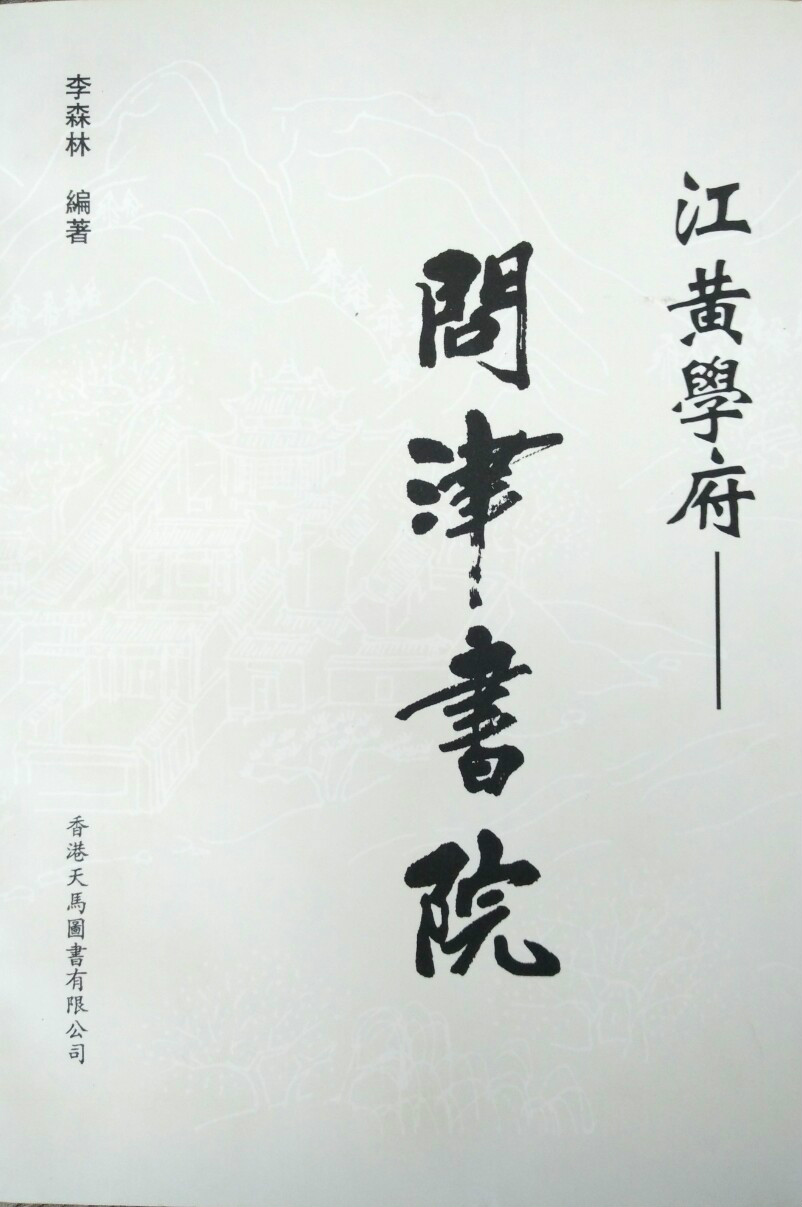 江黄學府——
問津書院
李森林 編著
香港天馬圖書有限公司